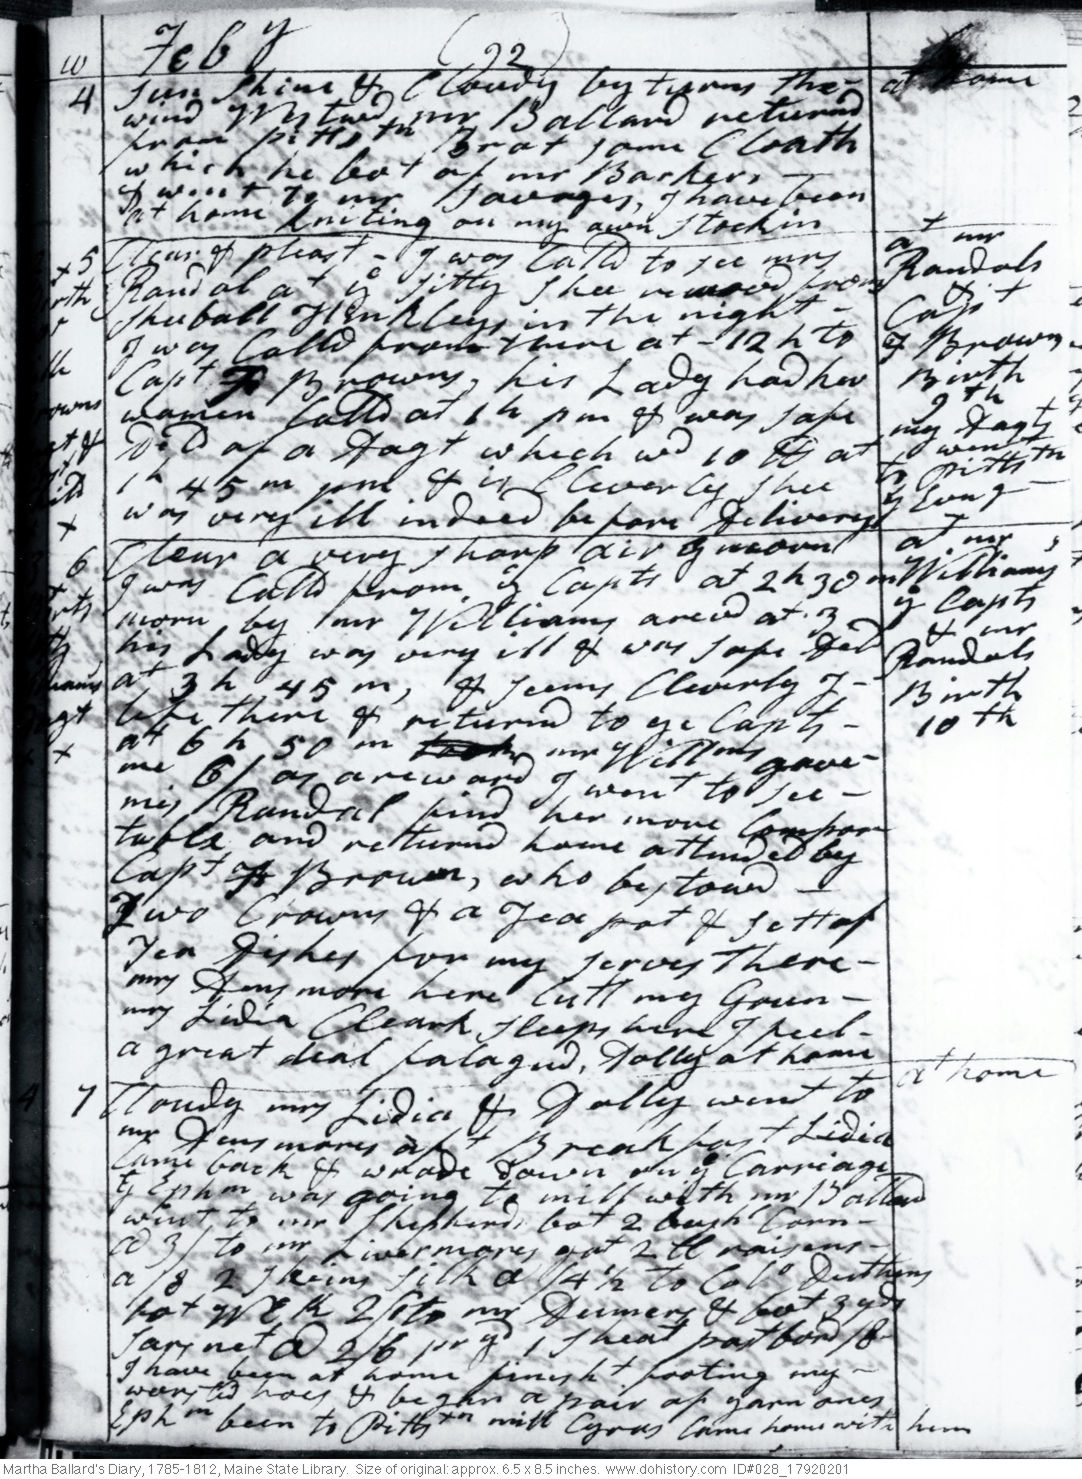 W Feby (22)
4 sun Shine & Cloudy by turns the at home
wind Wstwd mr Ballard returnd
from Pittstn Brot some Cloath
which he bot of mr Barkers -
I went to mr Savages, I have been
at home kniting on my own Stockin
5 Clear & pleast - I was Calld to see mrs
Randal at ye Sitty Shee removd from
Sheball Hinkleys in the night -
I was Calld from there at - 12 h to
Capt Browns, his Lady had her
women Calld at 1 h pm & was safe
DD of a Dagt which wd 10 lb at
1 h 45 m pm & is Cleverly Shee
was very ill indeed before Delivery
at mr
Randals
&
Capt
Browns
Birth
9th
my Dagts
went
to Pittstn
ys Evng -
6 Clear a very sharp air ys morn
I was Calld from ye Capts at 2 h 30 m
morn by mr Williams arivd at 3
his Lady was very ill & was safe Del
at 3 h 45 m, & seems Cleverly I -
left there & returnd to ye Capts -
at 6 h 50 m mr Willms gave -
me 6/ as a reward I went to see -
mis Randal find her more Compor
table and returnd home attended by
Capt Brown, who bestowd -
Two Crowns & a Tea pot & sett of
Tea Dishes for my serves there -
mrs Densmore here Cutt my Goun -
mrs Lidia Cleark sleeps here I feel -
a great deal fatagud, Dolly at home
at mr
Williams's
ye Capts
& mr
Randals
Birth
10th
7 Cloudy mrs Lidia & Dolly went to at home
mr Densmores aft Breakfast Lidia
Came back & wrode down on ye Carriage
Ephm was going to mill with mr Ballard
went to mr Shepherds bot 2 bush Corn -
@ 3/ to mr Livermores got 2 lb raisens -
a /8 2 skeins silk @ /4 1/2 to Colo Duttens
2/ to mr & bot 3 yds
sarsnet @ 2/6 pr yd 1 sheat pastbord /8
I have been at home finisht footing my -
worsted hoes & began a pair of yarn ones
Ephm been to Pittstn mill Cyrus Came home with him
Martha Ballard's Diary, 1785-1812, Maine State Library. Size of original: approx. 6.5 x 8.5 inches. www.dohistory.com ID#028_17920201